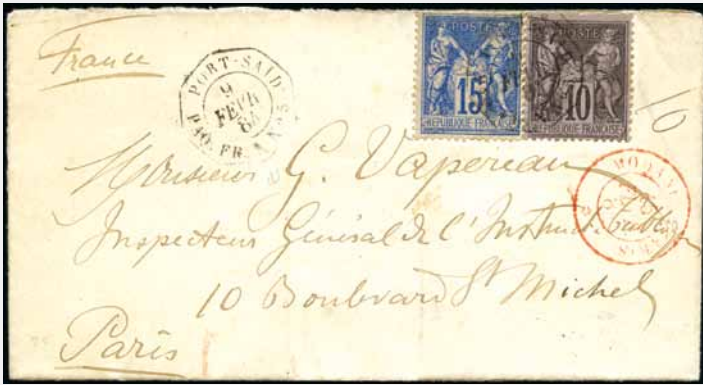 France
PORT-SAID
9
FEVR
PAQ. FR.
POSTE
15
REPUBLIQUE FRANCAISE
POSTE
10
REPUBLIQUE FRANCAISE
MODANE
Monsieur G. Vapereau
Inspecteur Général de l'Instruct. Publique
10 Boulevard St Michel
Paris